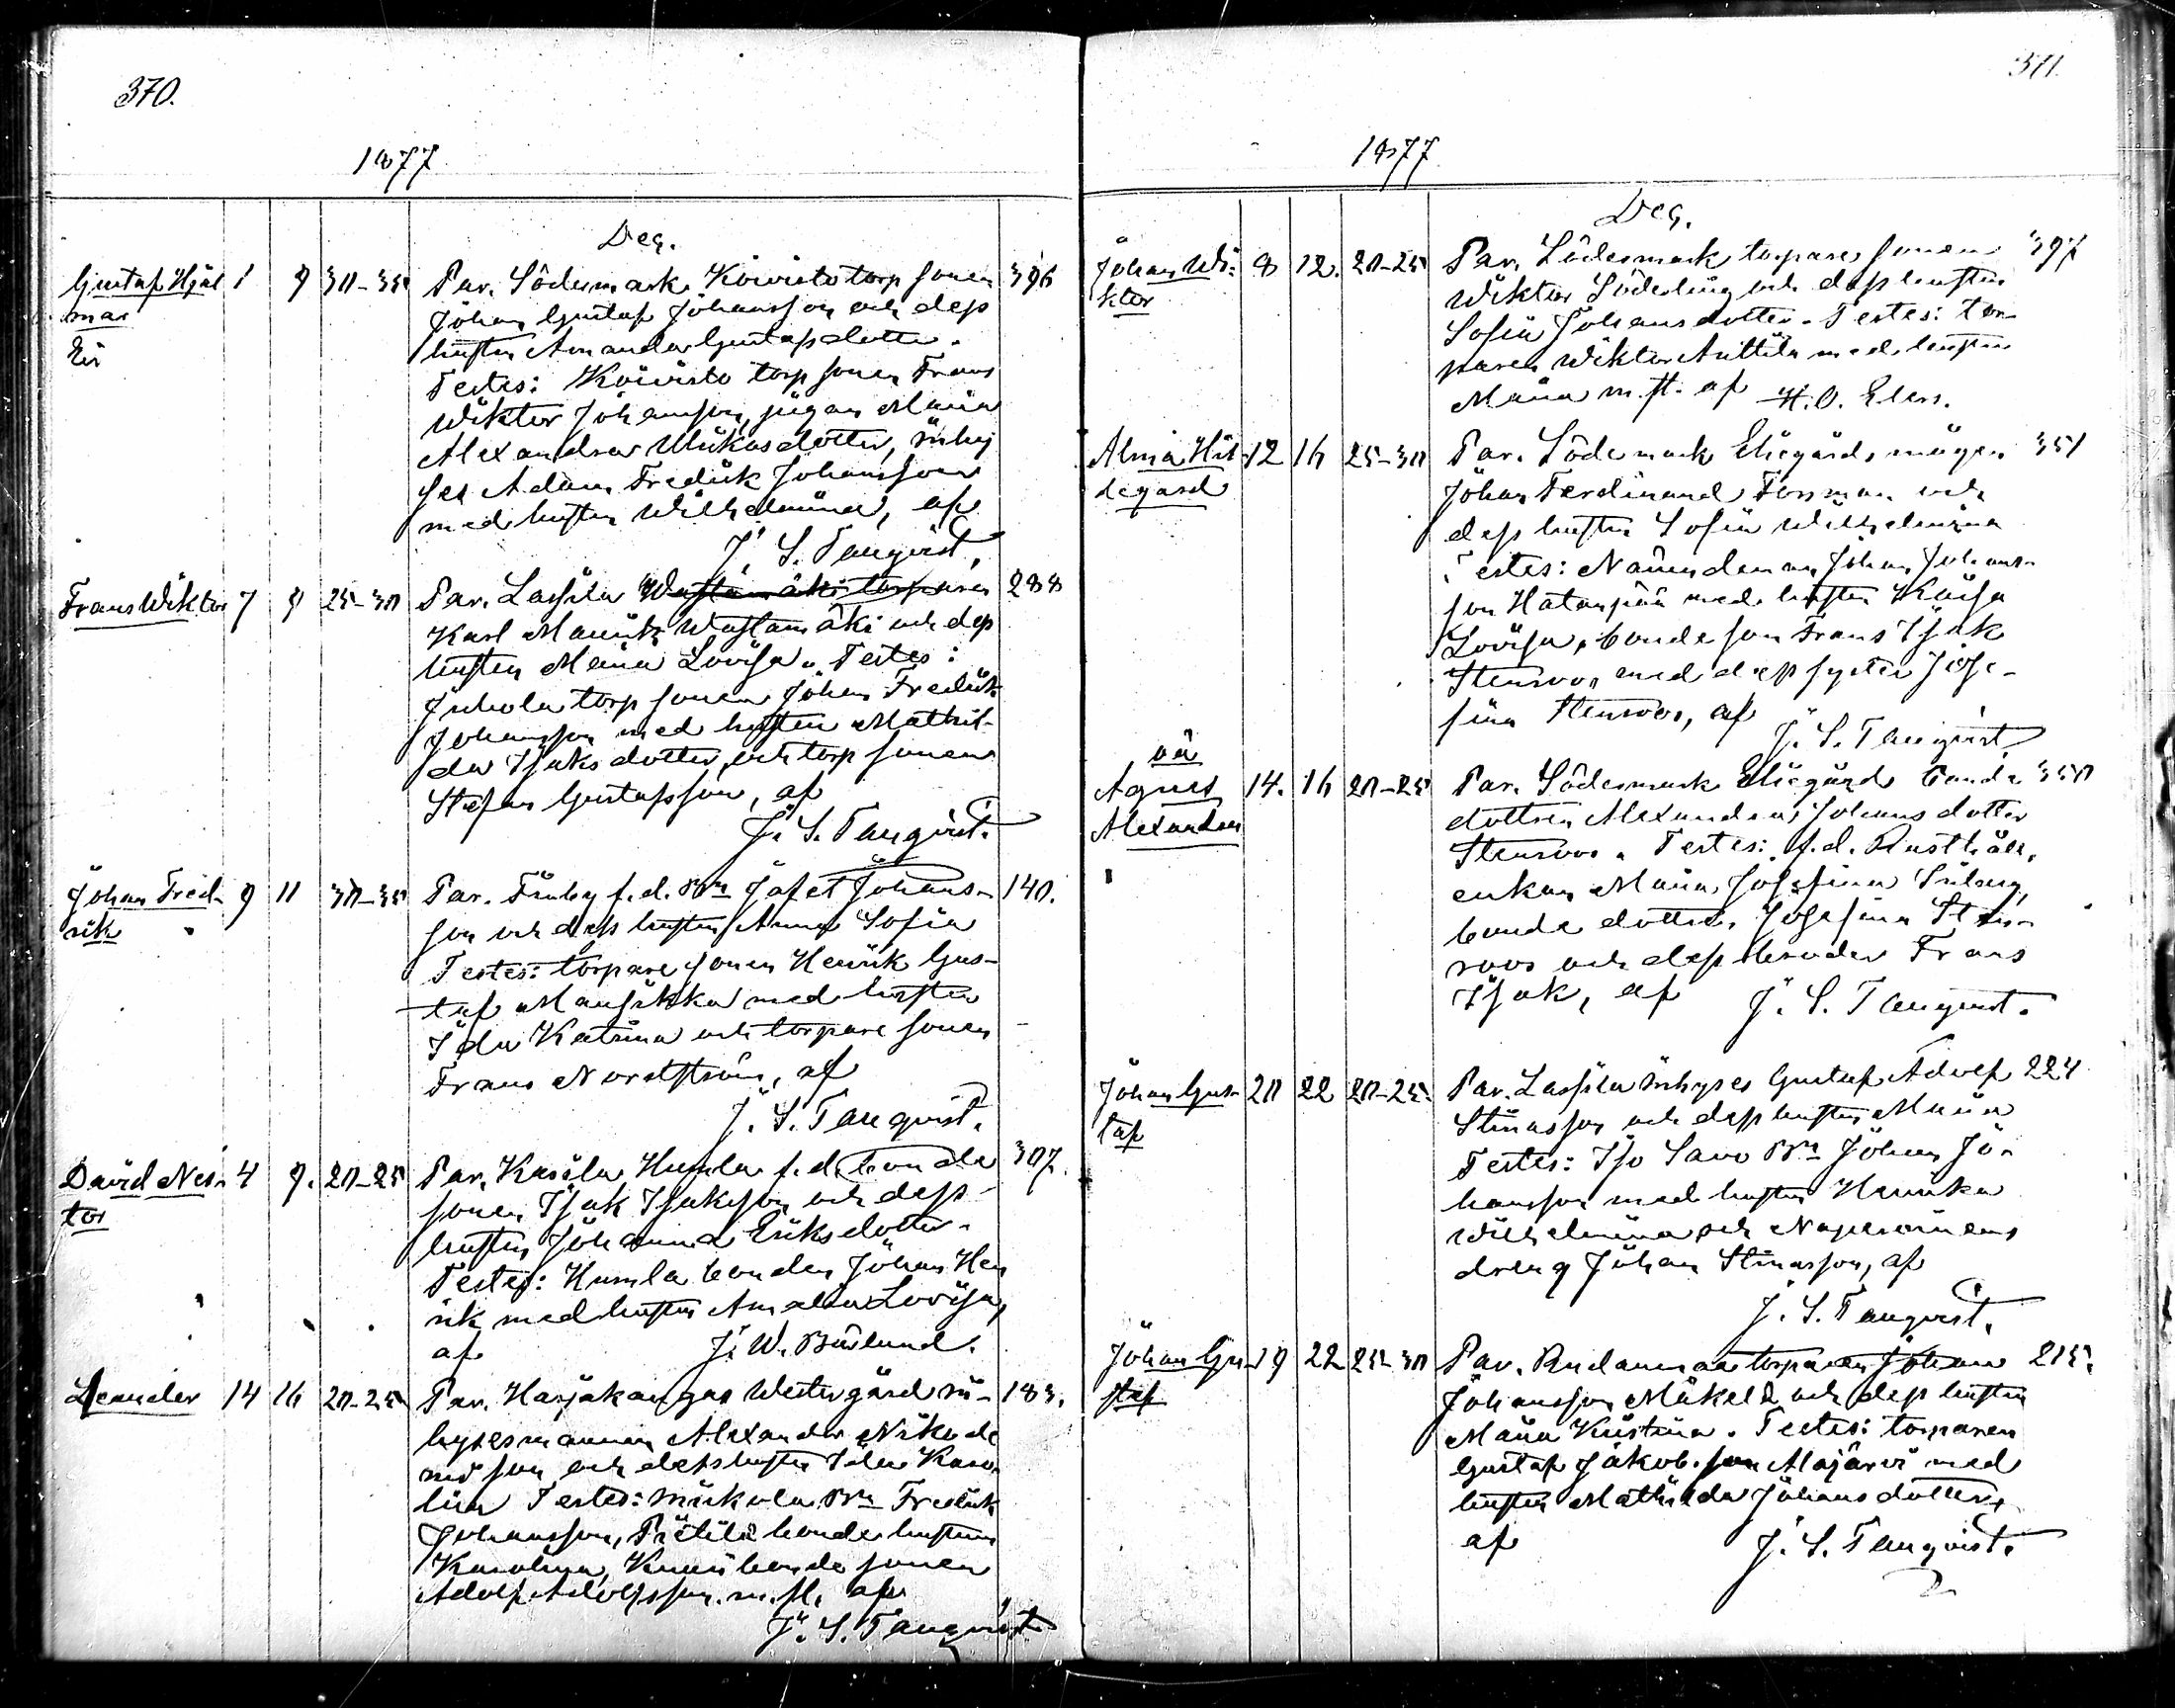 370.
1877
Dec.
Gustaf Hjal
mar
Eir
1 9 30-35 Par. Södermark Koivisto torp sonen 396
Johan Gustaf Johansson och dess
hustru Amanda Gustafsdotter.
Testes: Koivisto torp sonen Frans
Wiktor Johansson, pigan Maria
Alexandra Mikasdotter, inhy
ses Adam Fredrik Johansson
med hustru Wilhelmina, af
J. S. Tanqvist.
Frans Wiktor 7 9 25-30 Par. Lassila Wastamäki torparen 288
Karl Mauritz Wastamäki och dess
hustru Maria Lovisa. Testes:
Juhola torp sonen Johan Fredrik
Johansson med hustru Mathil-
da Isaksdotter, och torp sonen
Stefan Gustafsson, af
J. S. Tanqvist.
Johan Fred-
rik
9 11 30-35 Par. Finby f. d. Bn Jafet Johans- 140.
son och dess hustru Anna Sofia
Testes: torpare sonen Henrik Gus-
taf Mansikka med hustru
Ida Katrina och torpare sonen
Frans Nordström, af
J. S. Tanqvist.
David Nes-
tor
4 9. 20-25 Par. Kasila Humla f. d. bonde 307.
sonen Isak Isaksson och dess
hustru Johanna Eriksdotter.
Testes: Humla bonden Johan Hen
rik med hustru Amalia Lovisa,
af J. W. Bärlund.
Leander 14 16 20-25 Par. Harjakangas Westergård in- 183.
hysesmannen Alexander Nikode
mi son och dess hustru Ida Karo-
lina Testes: Bn Fredrik
Johansson, Prättilä bonde hustrun
Karolina, bonde sonen
Adolf Adolfsson m. fl. af
J. S. Tanqvist
371.
1877
Dec.
Johan Wi-
ktor
8 12. 20-25 Par. Södermark torpare sonen 397
Wiktor Söderling och dess hustru
Sofia Johansdotter. Testes: tor-
paren Wiktor Anttila med hustru
Maria m. fl. af H. O. Elers.
Alma Hil
degard
12 16 25-30 Par. Södermark Eliegårds mågen 351
Johan Ferdinand Forsman och
dess hustru Sofia Wilhelmina
Testes: Johan Johans-
son Hatanpää med hustru Kaisa
Lovisa, bonde son Frans Isak
Stenroos med dess syster Jose-
fina Stenroos, af
J. S. Tanqvist
oä
Agnes
Alexandra
14. 16 20-25 Par. Södermark Eliegård bonde 350
dottren Alexandra Johansdotter
Stenroos. Testes: f. d. Rusthåll.
enkan Maria Josefina
bonde dottren Josefina Sten-
roos och dess broder Frans
Isak, af J. S. Tanqvist.
Johan Gus-
taf
20 22 20-25. Par. Lassila inhyses Gustaf Adolf 224
Stinasson och dess hustru Maria
Testes: Iso Savo Bn Johan Jo-
hansson med hustru Henrika
Wilhelmina och
dreng Johan Stinasson, af
J. S. Tanqvist.
Johan Gu-
staf
19 22 25-30 Par. Rudanmaa torparen Johan 215.
Johansson Mäkelä och dess hustru
Maria Kristina. Testes: torparen
Gustaf Jakob. son Majärvi med
hustru Mathilda Johansdotter,
af J. S. Tanqvist.